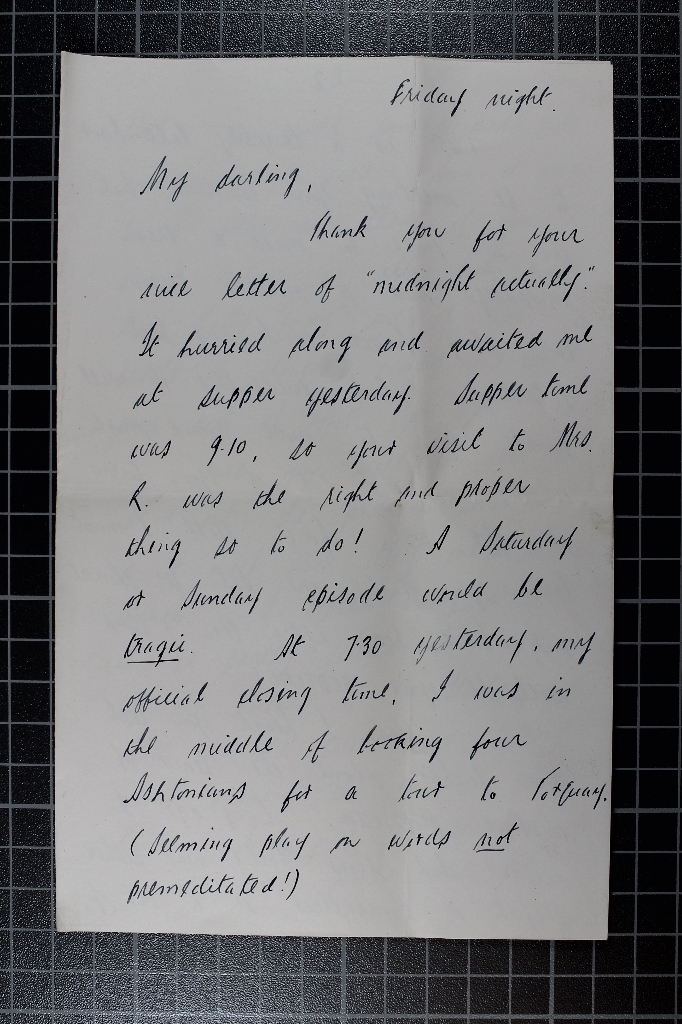 Friday night.
My darling,
Thank you for your
nice letter of "midnight actually."
It hurried along and awaited me
at supper yesterday. Supper time
was 9.10, so your visit to Mrs.
R. was the right and proper
thing so to do! A Saturday
or Sunday episode would be
tragic. At 7.30 yesterday, my
official closing time, I was in
the middle of booking four
Ashtonians for a tour to Torquay.
(Seeming play on words not
premeditated!)